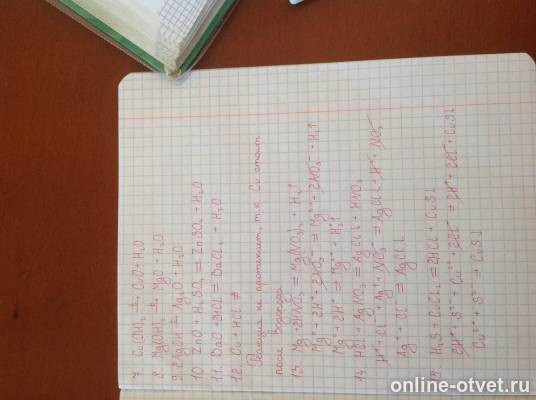 7. Cu(OH)₂ t→ CuO + H₂O
8. Mg(OH)₂ t→ MgO + H₂O
9. 2AgOH t→ Ag₂O + H₂O
10. ZnO + H₂SO₄ = ZnSO₄ + H₂O
11. BaO + 2HCl = BaCl₂ + H₂O
12. Cu + HCl ≠
Реакция не протекает, т.к. Cu стоит
после водорода
13. Mg + 2HNO₃ = Mg(NO₃)₂ + H₂↑
Mg + 2H⁺ + 2NO₃⁻ = Mg²⁺ + 2NO₃⁻ + H₂↑
Mg + 2H⁺ = Mg²⁺ + H₂↑
14. HCl + AgNO₃ = AgCl↓ + HNO₃
H⁺ + Cl⁻ + Ag⁺ + NO₃⁻ = AgCl↓ + H⁺ + NO₃⁻
Ag⁺ + Cl⁻ = AgCl↓
15 H₂S + CuCl₂ = 2HCl + CuS↓
2H⁺ + S²⁻ + Cu²⁺ + 2Cl⁻ = 2H⁺ + 2Cl⁻ + CuS↓
Cu²⁺ + S²⁻ = CuS↓
online-otvet.ru